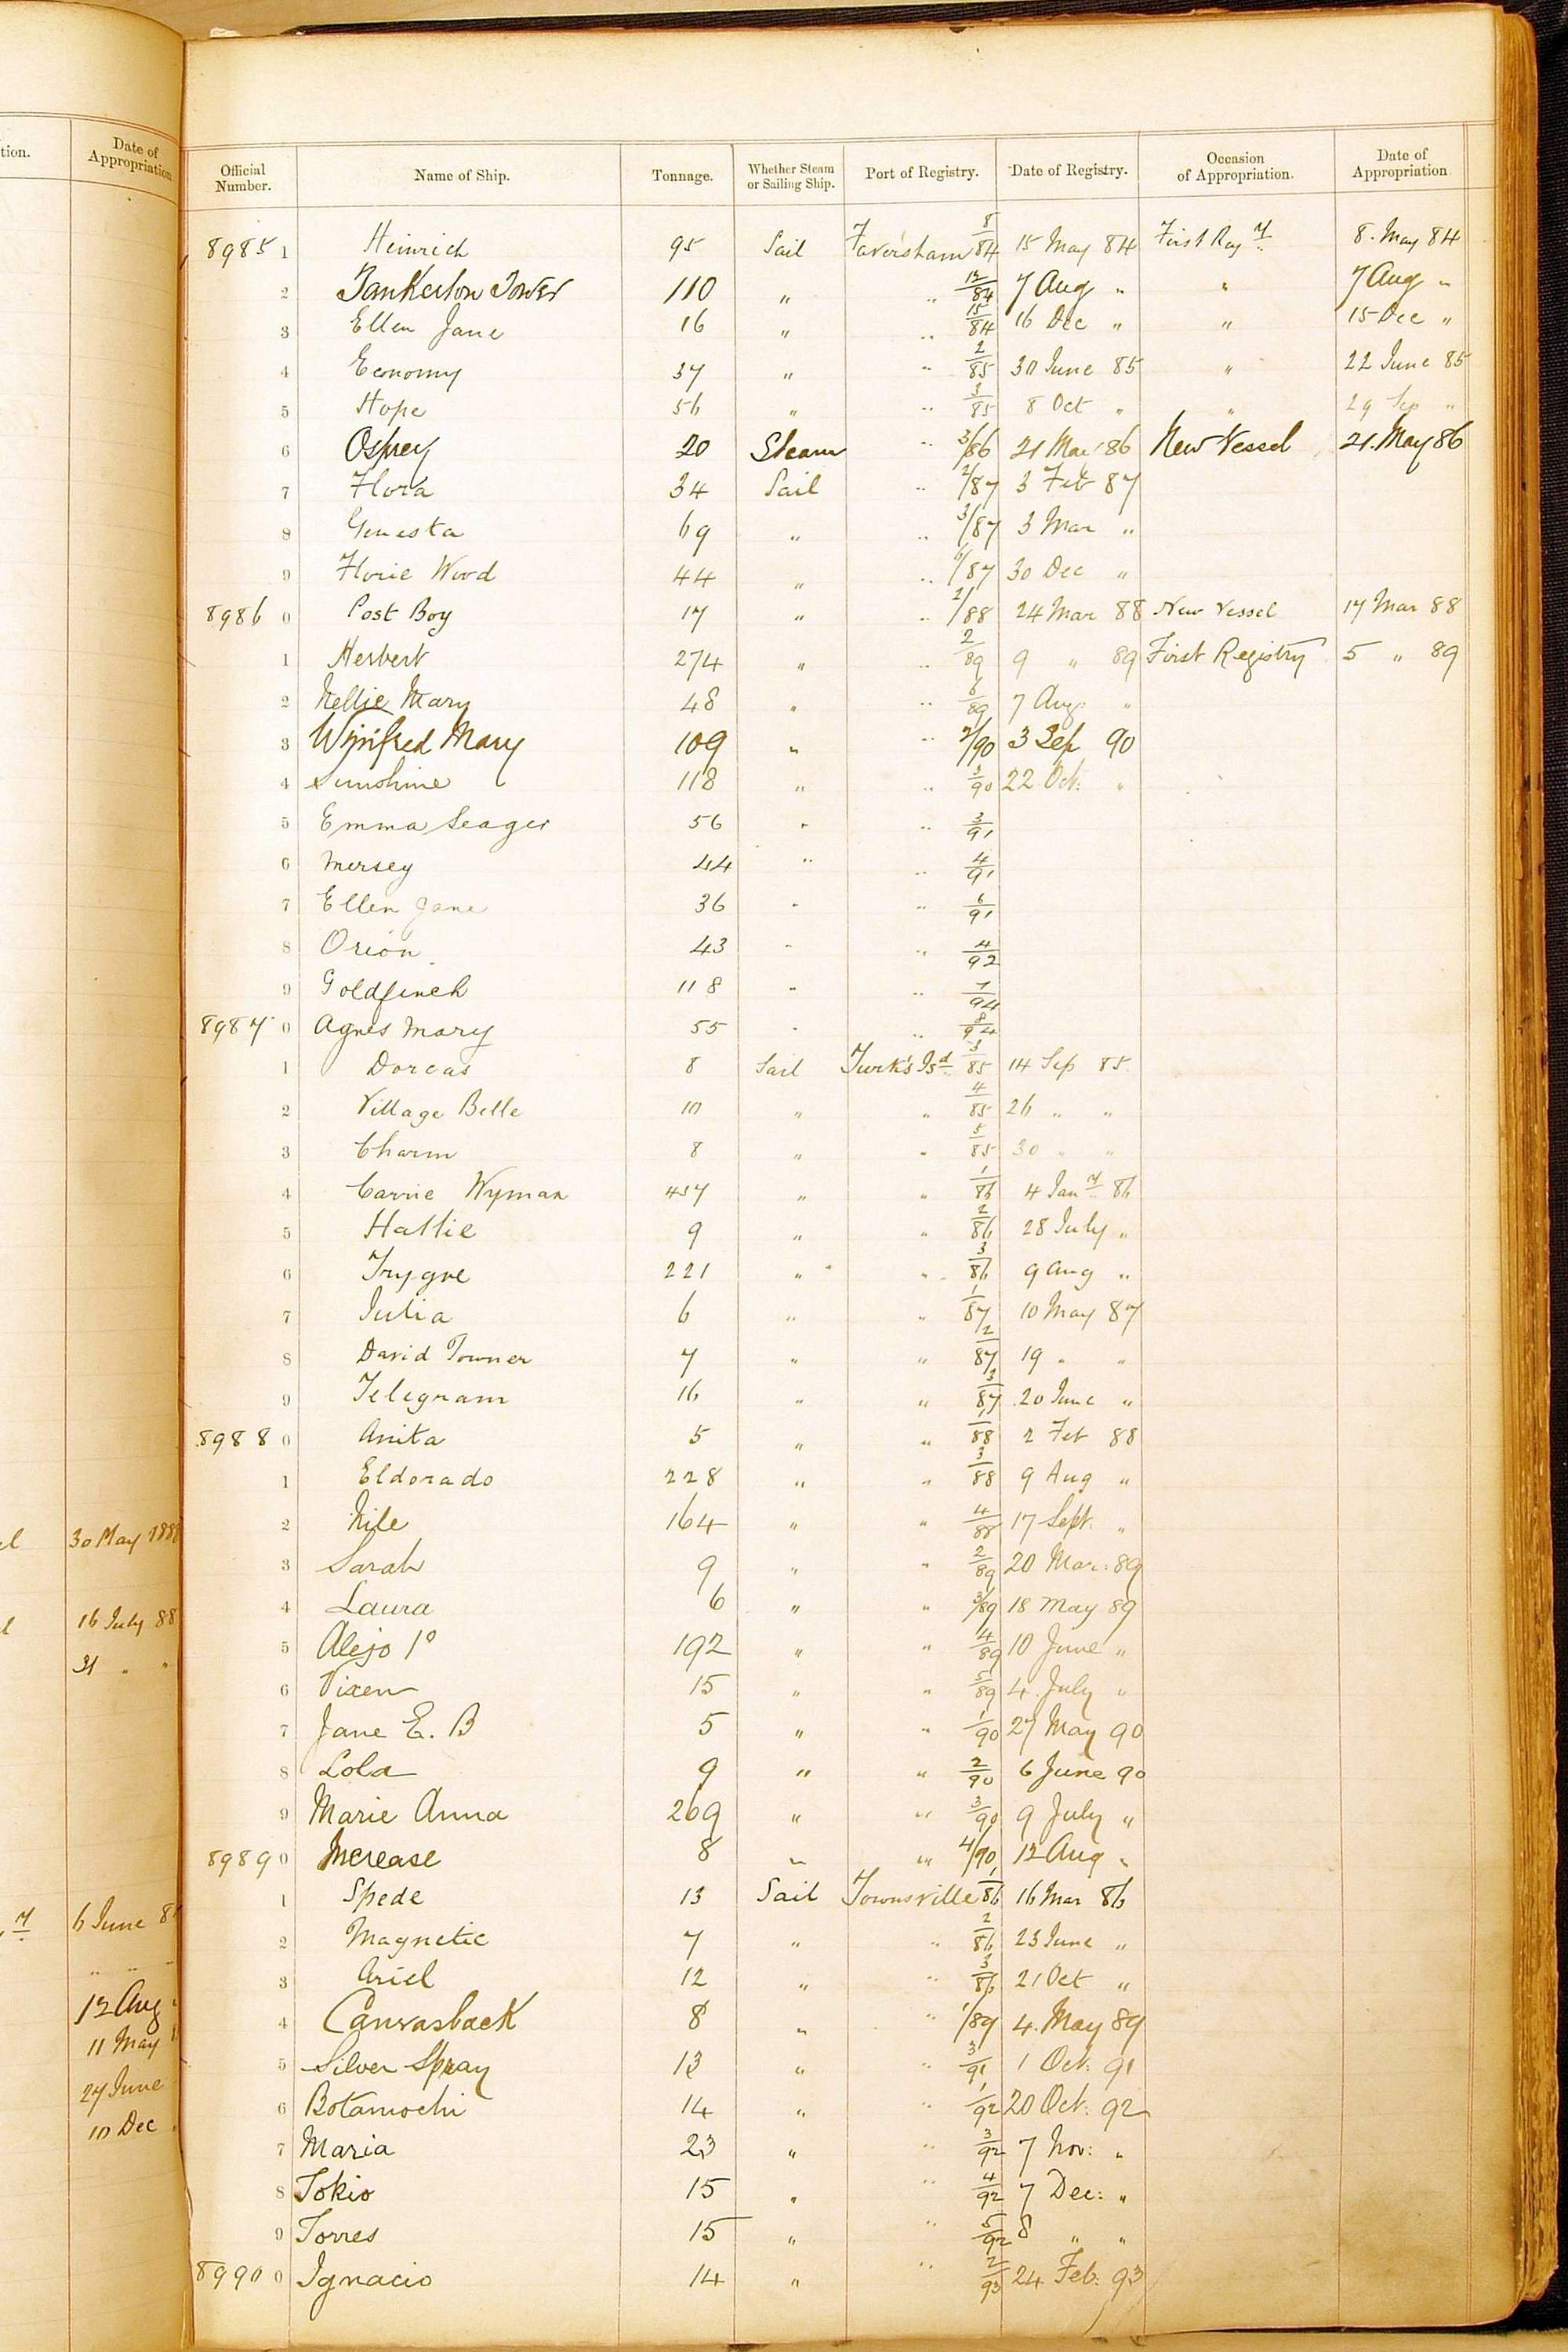 tion.
Date of Appropriation
30 May 188
16 July 88
31 " "
6 June 8
" " "
12 Aug
11 May
27 June
10 Dec
Official Number. Name of Ship. Tonnage. Whether Steam or Sailing Ship. Port of Registry. Date of Registry. Occasion of Appropriation. Date of Appropriation
8985 1 Heinrich 95 Sail Faversham 8/84 15 May 84 First Reg y 8. May 84
2 Tankerton Tower 110 " " 12/84 7 Aug " " 7 Aug "
3 Ellen Jane 16 " " 15/84 16 Dec " " 15 Dec "
4 Economy 37 " " 2/85 30 June 85 " 22 June 85
5 Hope 56 " " 3/85 8 Oct " " 29 Sep "
6 Osprey 20 Steam " 3/86 21 Mai 86 New Vessel 21. May 86
7 Flora 34 Sail " 2/87 3 Feb 87
8 Genesta 69 " " 3/87 3 Mar "
9 Florie Wood 44 " " 6/87 30 Dec "
8986 0 Post Boy 17 " " 2/88 24 Mar 88 New Vessel 17 Mar 88
1 Herbert 274 " " 2/89 9 " 89 First Registry 5 " 89
2 Nellie Mary 48 " " 6/89 7 Aug: "
3 Winifred Mary 109 " " 2/90 3 Sep 90
4 Sunshine 118 " " 3/90 22 Oct: "
5 Emma Seager 56 " " 3/91
6 Mersey 44 " " 4/91
7 Ellen Jane 36 " " 6/91
8 Orion 43 " " 4/92
9 Goldfinch 118 " " 7/94
8987 0 Agnes Mary 55 " " 8/94
1 Dorcas 8 Sail Turk's Isd 3/85 14 Sep 85
2 Village Belle 10 " " 4/85 26 " "
3 Charm 8 " " 5/85 30 " "
4 Carrie Wyman 457 " " 1/86 4 Jan y 86
5 Hattie 9 " " 2/86 28 July "
6 Trygve 221 " " 3/86 9 Aug "
7 Julia 6 " " 1/87 10 May 87
8 David Towner 7 " " 2/87 19 " "
9 Telegram 16 " " 3/87 20 June "
8988 0 Anita 5 " " 1/88 2 Feb 88
1 Eldorado 228 " " 3/88 9 Aug "
2 Nile 164 " " 4/88 17 Sept. "
3 Sarah 9 " " 2/89 20 Mar: 89
4 Laura 6 " " 3/89 18 May 89
5 Alejo 1º 192 " " 4/89 10 June "
6 Vixen 15 " " 5/89 4 July "
7 Jane E. B 5 " " 1/90 27 May 90
8 Lola 9 " " 2/90 6 June 90
9 Marie Anna 269 " " 3/90 9 July "
8989 0 Increase 8 " " 4/90 12 Aug "
1 Spede 13 Sail Townsville 1/86 16 Mar 86
2 Magnetic 7 " " 2/86 23 June "
3 Ariel 12 " " 3/86 21 Oct "
4 Canvasback 8 " " 1/89 4. May 89
5 Silver Spray 13 " " 3/91 1 Oct: 91
6 Botamochi 14 " " 1/92 20 Oct: 92
7 Maria 23 " " 3/92 7 Nov: "
8 Tokio 15 " " 4/92 7 Dec: "
9 Torres 15 " " 5/92 8 " "
8990 0 Ignacio 14 " " 2/93 24 Feb: 93